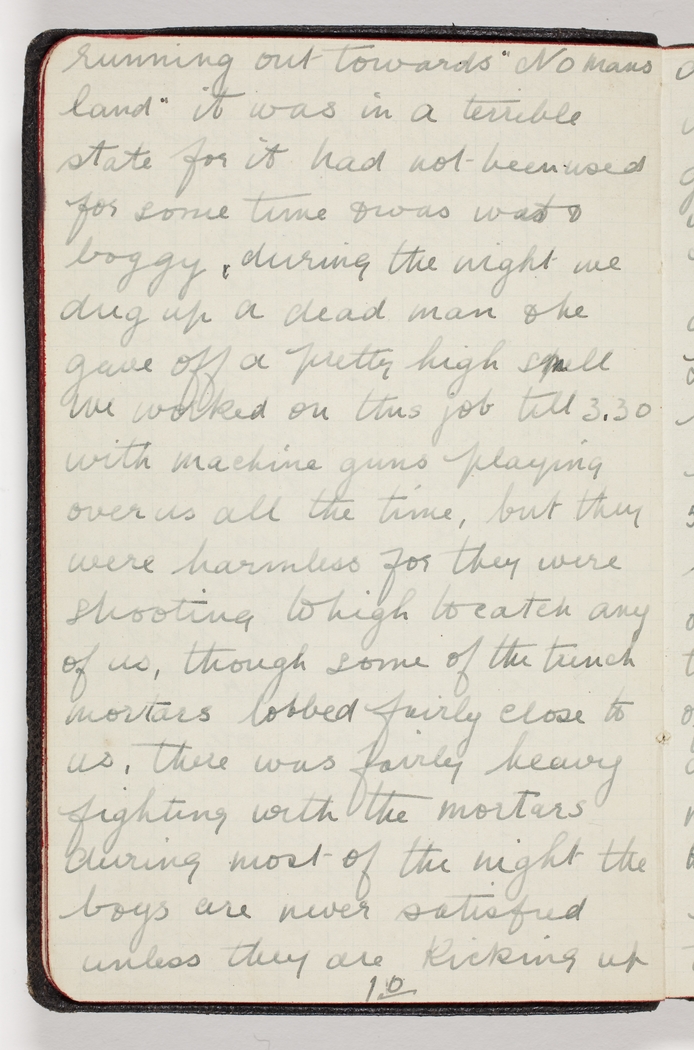 running out towards "No mans
land" it was in a terrible
state for it had not been used
for some time & was wet &
boggy, during the night we
dug up a dead man & he
gave off a pretty high smell
we worked on this job till 3.30
with machine guns playing
over us all the time, but they
were harmless for they were
shooting to high to catch any
of us, though some of the trench
mortars lobbed fairly close to
us, there was fairly heavy
fighting with the mortars
during most of the night the
boys are never satisfied
unless they are kicking up
10